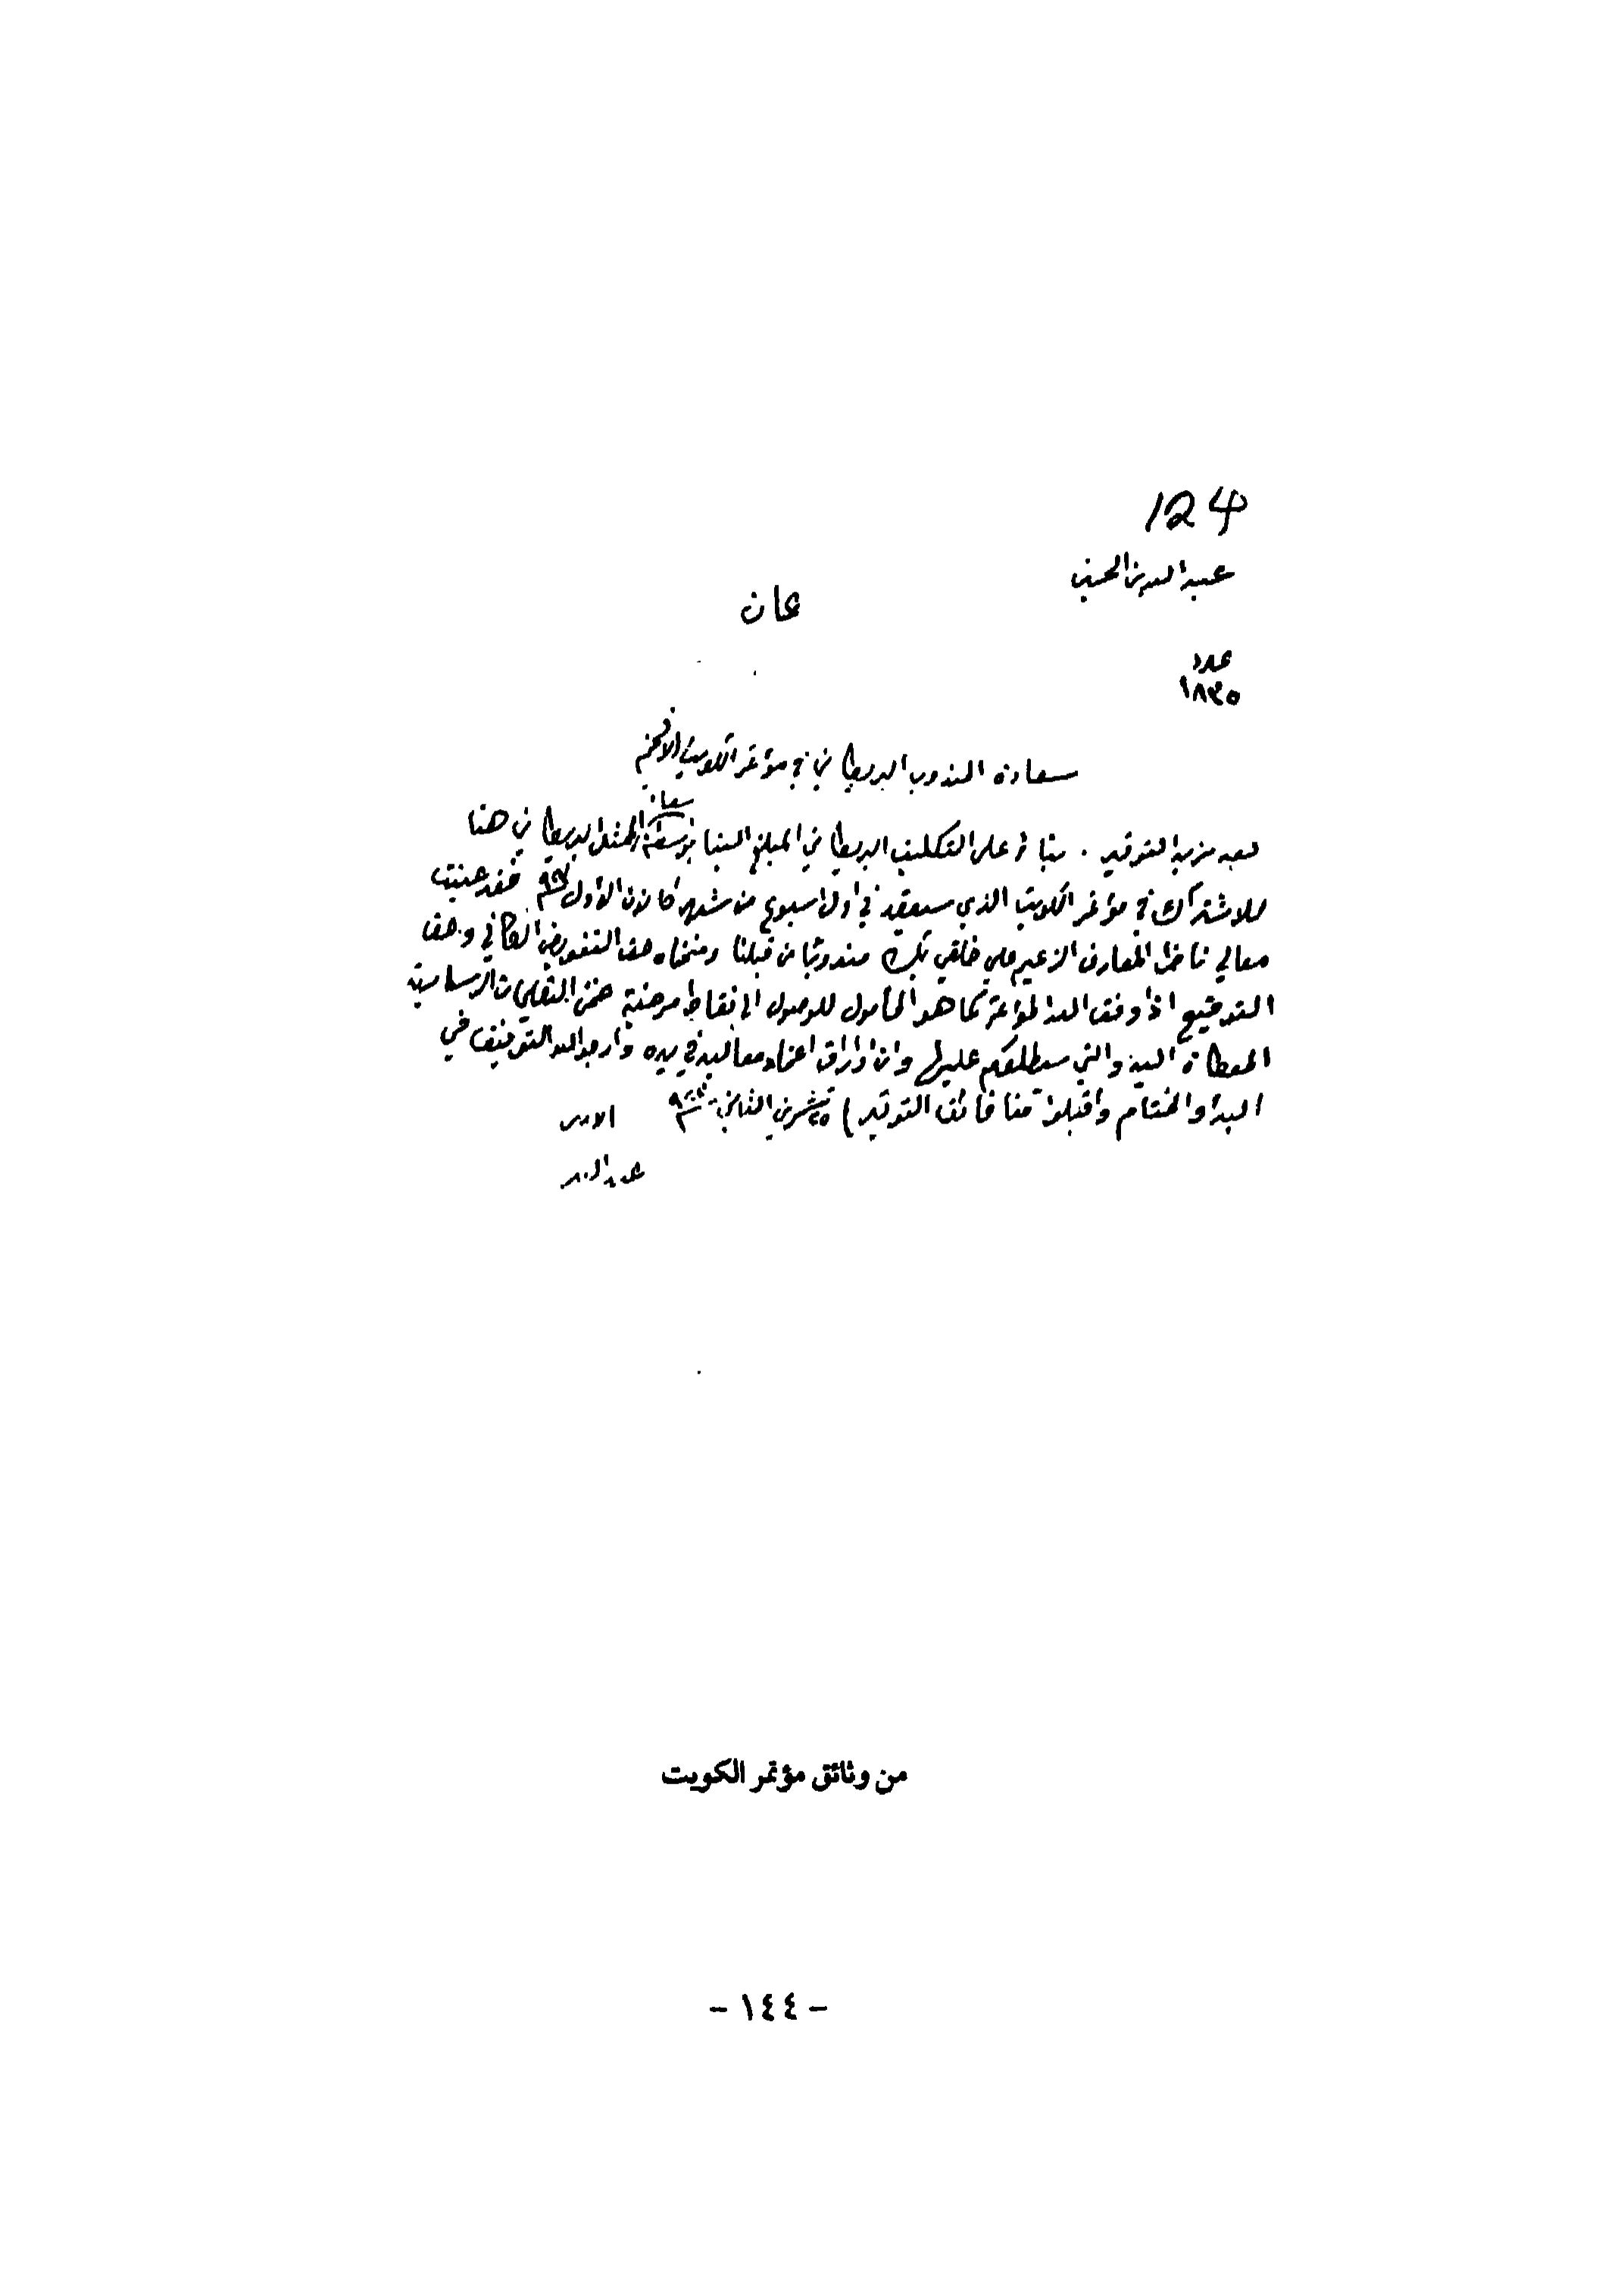 124
عبد الله بن الحسين
عمان
عدد
١٨٣٥
سعادة المندوب البريطاني في مؤتمر الكويت الافخم
سعادة
بعد مزيد التوقير . بناء على التكليف البريطاني المبلغ الينا بواسطة الممثل البريطاني هنا
للاشتراك في مؤتمر الكويت الذي سيعقد في اول اسبوع من شهر كانون الاول فقد عينت
معالي ناظر المعارف الزعيم علي خلقي بك مندوبا من قبلنا ومنحناه حق التفويض الكافي وحق
التوقيع اذا وفق الله المؤتمر كما هو المأمول للوصول الى نقاط مرضية ضمن التعليمات الاساسية
المعطاة اليه والتي سيطلعكم عليها وان اوراق اعتماد معاليه في يده وارجو الله التوفيق في
البدأ والختام واقبلوا منا فائق التوقير ) ٢٥ تشرين الثاني
الامير
عبد الله
من وثائق مؤتمر الكويت
- ١٤٤ -